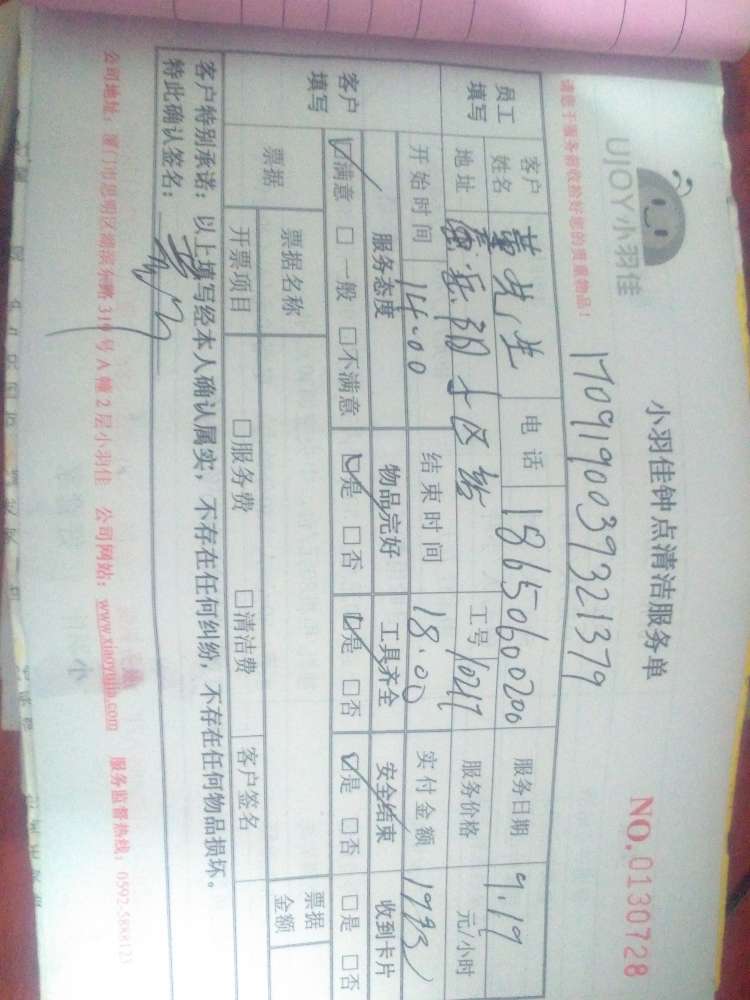 UJOY小羽佳
小羽佳钟点清洁服务单
NO.0130728
请您于服务前收拾好您的贵重物品!
17091900397321379
员工填写
客户姓名 黄先生 电话 18650600200 服务日期 9.19
地址 工号 10217 服务价格 元/小时
开始时间 14:00 结束时间 18:00 实付金额
客户填写
服务态度 物品完好 工具齐全 安全结束 收到卡片
☑满意 □一般 □不满意 ☑是 □否 ☑是 □否 ☑是 □否 □是 □否
票据 票据名称 票据金额
开票项目 □服务费 □清洁费 客户签名
客户特别承诺:以上填写经本人确认属实,不存在任何纠纷,不存在任何物品损坏。
特此确认签名:
公司地址:厦门市思明区湖滨东路319号A幢2层小羽佳 公司网站:www.xiaoyujia.com 服务监督热线:0592-5888121